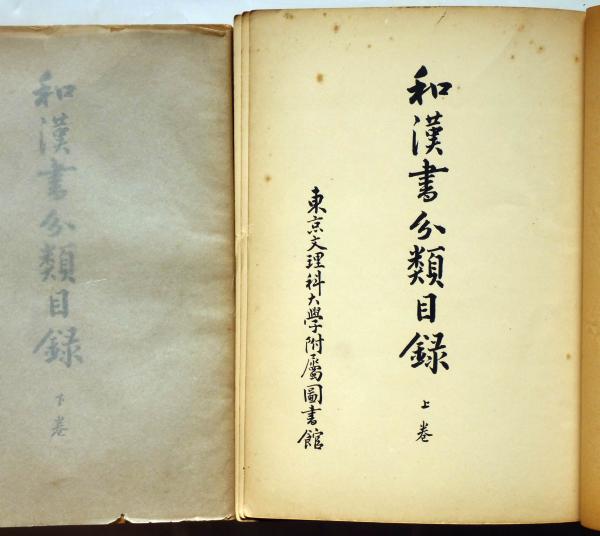 和漢書分類目録
上巻
東京文理科大學附屬圖書館
和漢書分類目録
下巻